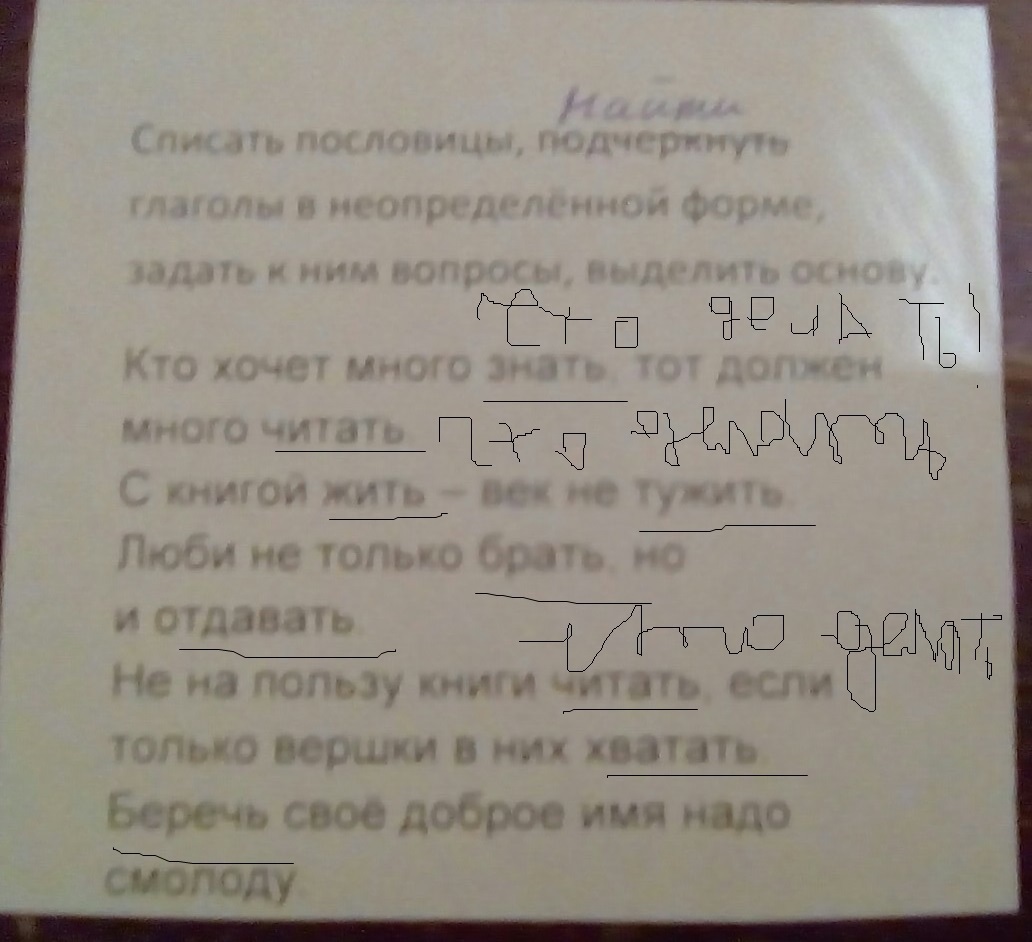 Найти
Списать пословицы, подчеркнуть
глаголы в неопределённой форме,
задать к ним вопросы, выделить основу.
Что делать
Кто хочет много знать, тот должен
много читать.
С книгой жить – век не тужить.
Люби не только брать, но
и отдавать.
Не на пользу книги читать, если
только вершки в них хватать.
Беречь своё доброе имя надо
смолоду.